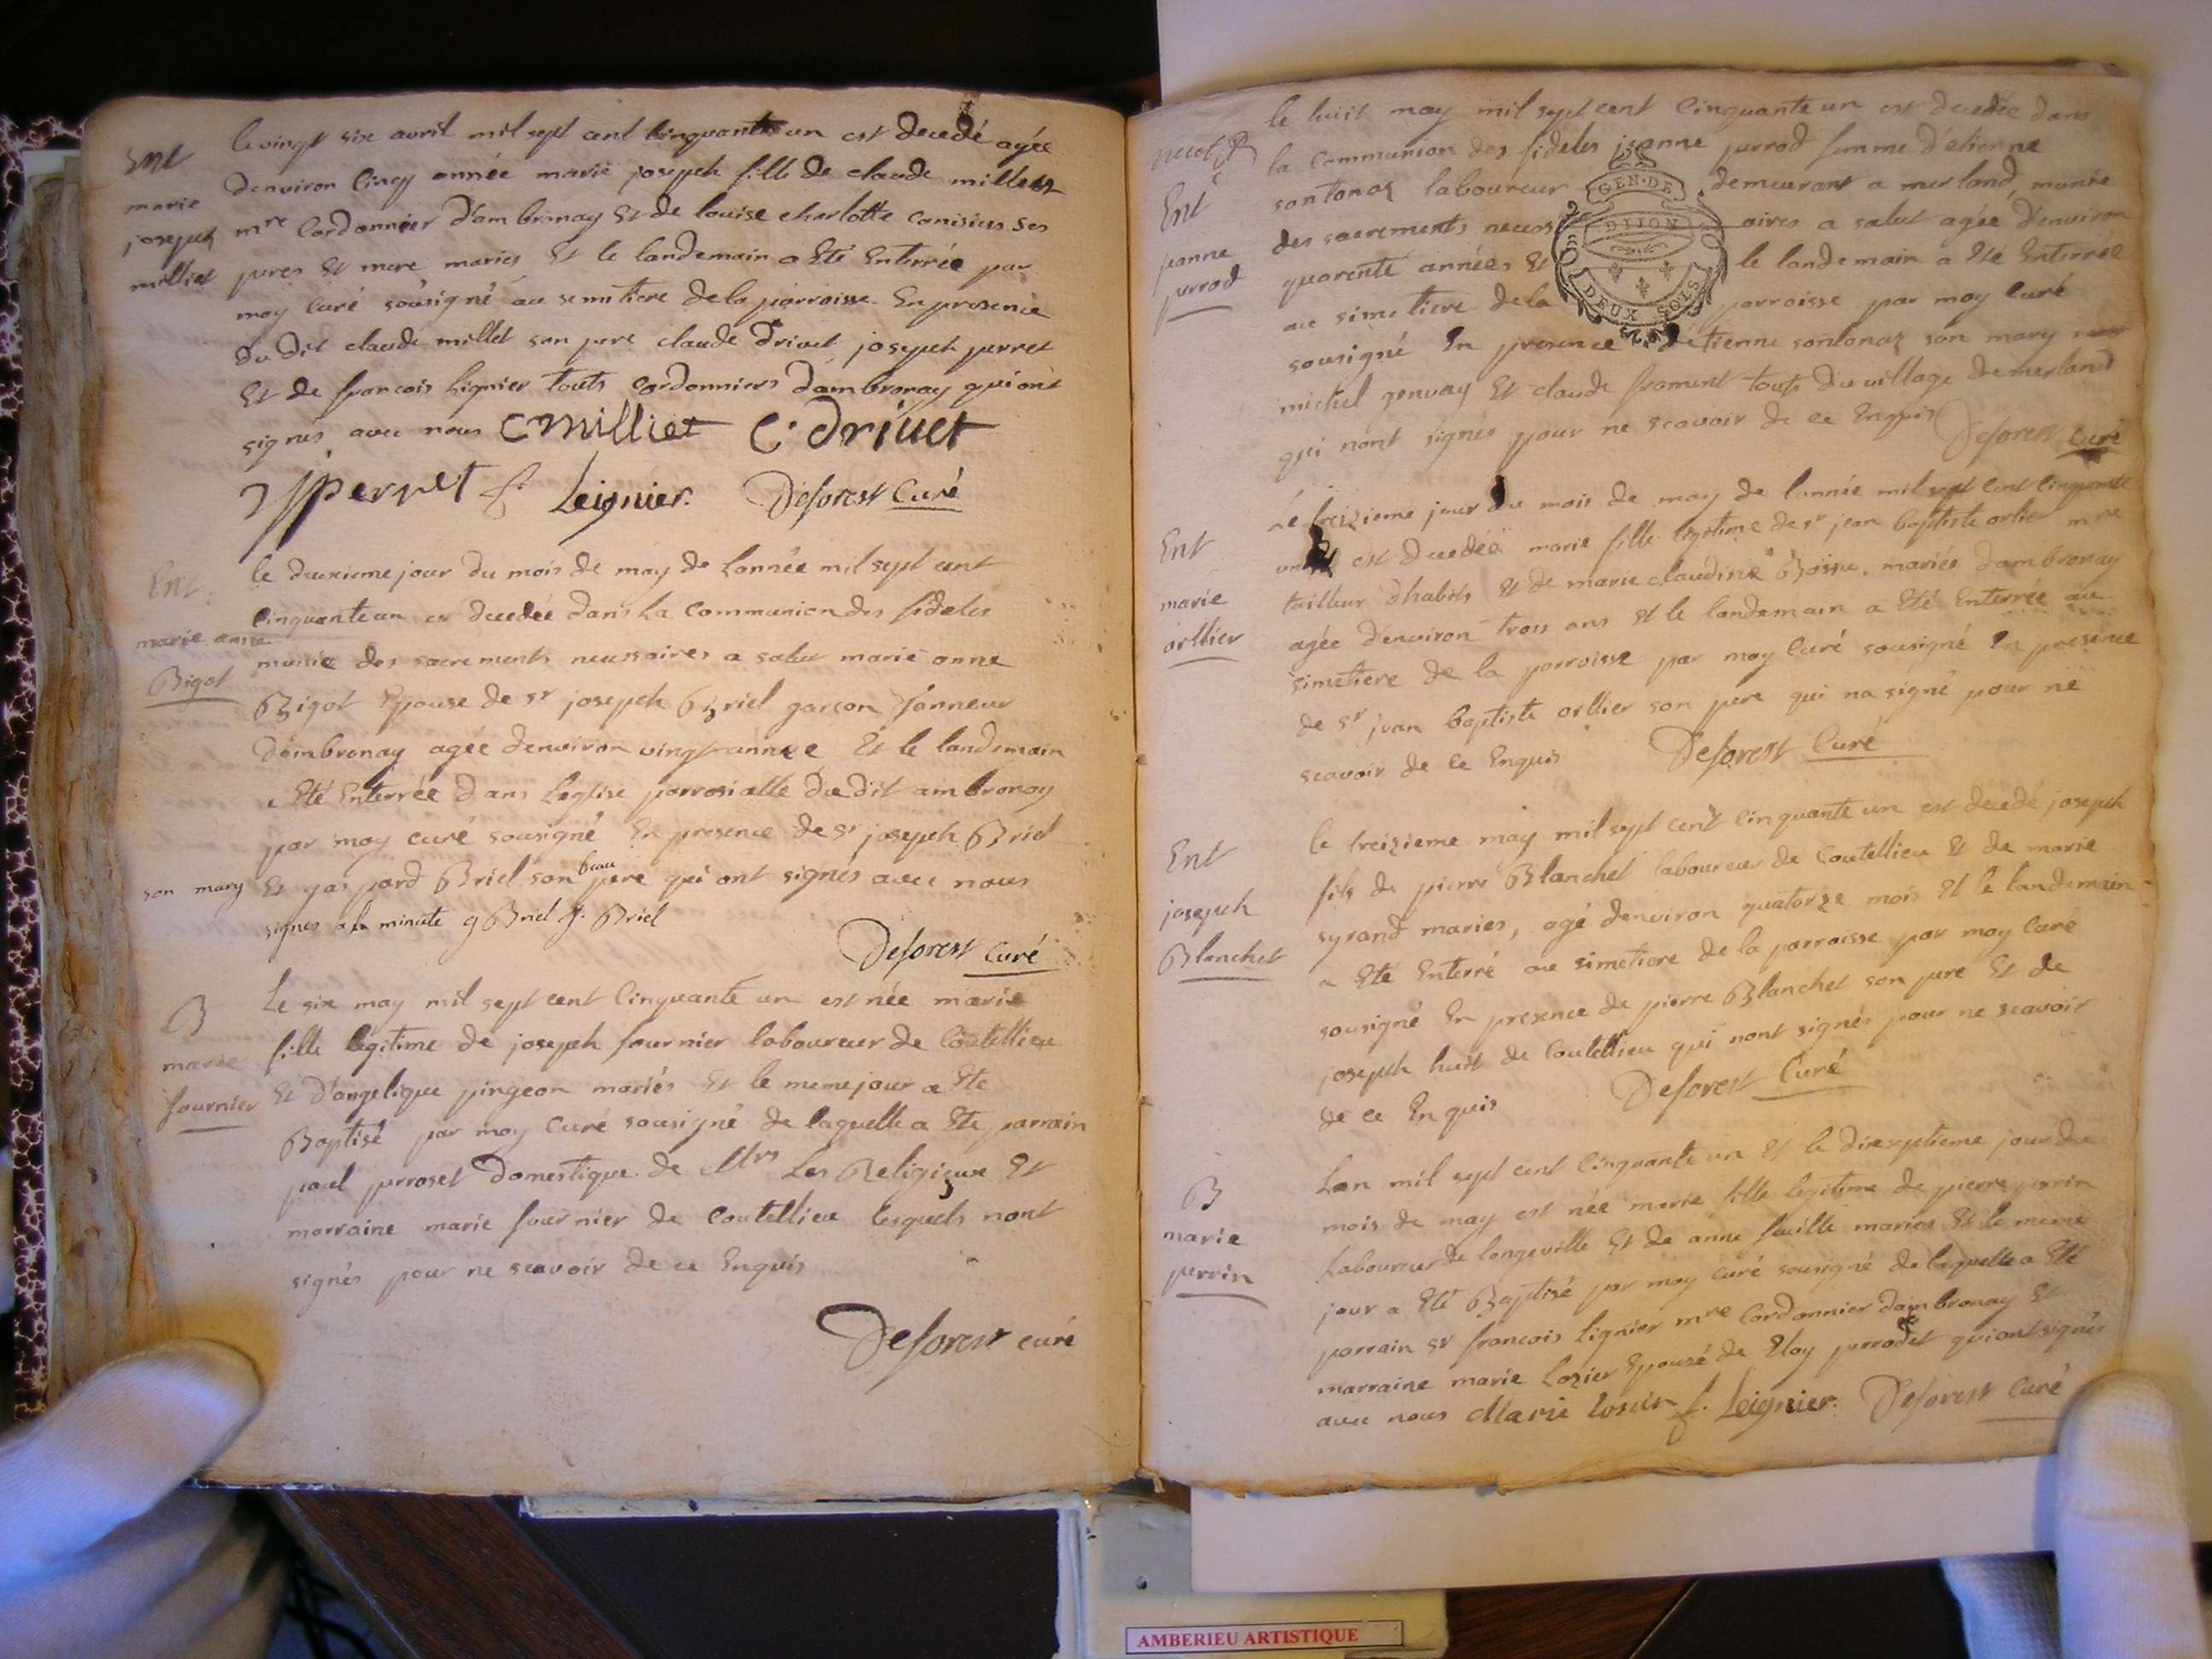 Ent
marie
joseph
milliet
le vingt six avril mil sept cent cinquante un est decedé agée
denviron cincq année marie joseph fille de claude milliet
mre Cordonnier dambronay Et de louise charlotte canisius ses
peres Et mere maries Et le landemain a Eté Enterrée par
moy Curé sousigné au semitiere de la parroisse En presence
du dit claude millet son pere claude Drivet joseph perret
Et de francois Lignier touts Cordonniers dambronay qui ont
signés avec nous C Milliet C. Drivet
J perret f. Leignier. Deforest Curé
Ent
marie anne
Bigot
le deuxieme jour du mois de may de Lannée mil sept cent
Cinquante un est decedée dans La Communion des fideles
munie des sacrements necessaires a salut marie anne
Bigot Epouse de sr joseph Briel garcon Tanneur
dambronay agée denviron vingt année Et le landemain
a Eté Enterrée dans Leglise parrosialle du dit ambronay
par moy curé sousigné En presence de sr joseph Briel
son mary Et gaspard Briel son beau pere qui ont signés avec nous
signes a la minute g Briel j. Briel
Deforest Curé
B
marie
fournier
Le six may mil sept cent Cinquante un est née marie
fille légitime de joseph fournier laboureur de Coutellieu
Et d'angelique pingeon mariés Et le meme jour a Ete
Baptisé par moy Curé sousigné de laquelle a Ete parrain
paul perroset domestique de Mrs Les Religieux Et
marraine marie fournier de Coutellieu lesquels nont
signés pour ne scavoir de ce Enquis
Deforest curé
Ent
jeanne
perrod
le huit may mil sept cent Cinquante un est decedée dans
la Communion des fideles jeanne perrod femme d'etienne
santonaz laboureur demeurant a merland, munie
des sacrements necessaires a salut agée d'environ
quarente années Et le landemain a Eté Enterrée
au simetiere de la parroisse par moy Curé
sousigné En presence d'étienne santonaz son mary
michel genvay Et claude froment touts du village de merland
qui nont signés pour ne scavoir de ce Enquis Deforest Curé
GEN. DE
DIJON
DEUX SOLS
Ent
marie
orllier
Le treizieme jour du mois de may de lannée mil sept cent Cinquante
un est decedée marie fille legitime de sr jean baptiste orlier mre
tailleur dhabits Et de marie claudine Bossu mariés dambronay
agée denviron trois ans Et le landemain a Eté Enterrée au
simetiere de la parroisse par moy Curé sousigné En presence
de sr jean baptiste orllier son pere qui na signé pour ne
scavoir de ce Enquis Deforest Curé
Ent
joseph
Blanchet
le treizieme may mil sept cent Cinquante un est decedé joseph
fils de pierre Blanchet laboureur de Coutellieu Et de marie
syrand maries, agé denviron quatorze mois Et le landemain
a Eté Enterré au simetiere de la parroisse par moy Curé
sousigné En presence de pierre Blanchet son pere Et de
joseph huit de Coutellieu qui nont signés pour ne scavoir
de ce Enquis Deforest Curé
B
marie
perrin
Lan mil sept cent Cinquante un Et le dixseptieme jour du
mois de may est née marie fille legitime de pierre perrin
Laboureur de longeville Et de anne feuille maries Et le meme
jour a Eté Baptisé par moy curé sousigné de laquelle a Eté
parrain sr francois Lignier mre Cordonnier dambronay Et
marraine marie Lozier Epouse de Eloy perrodet qui ont signés
avec nous Marie losier f. Leignier. Deforest Curé
AMBERIEU ARTISTIQUE